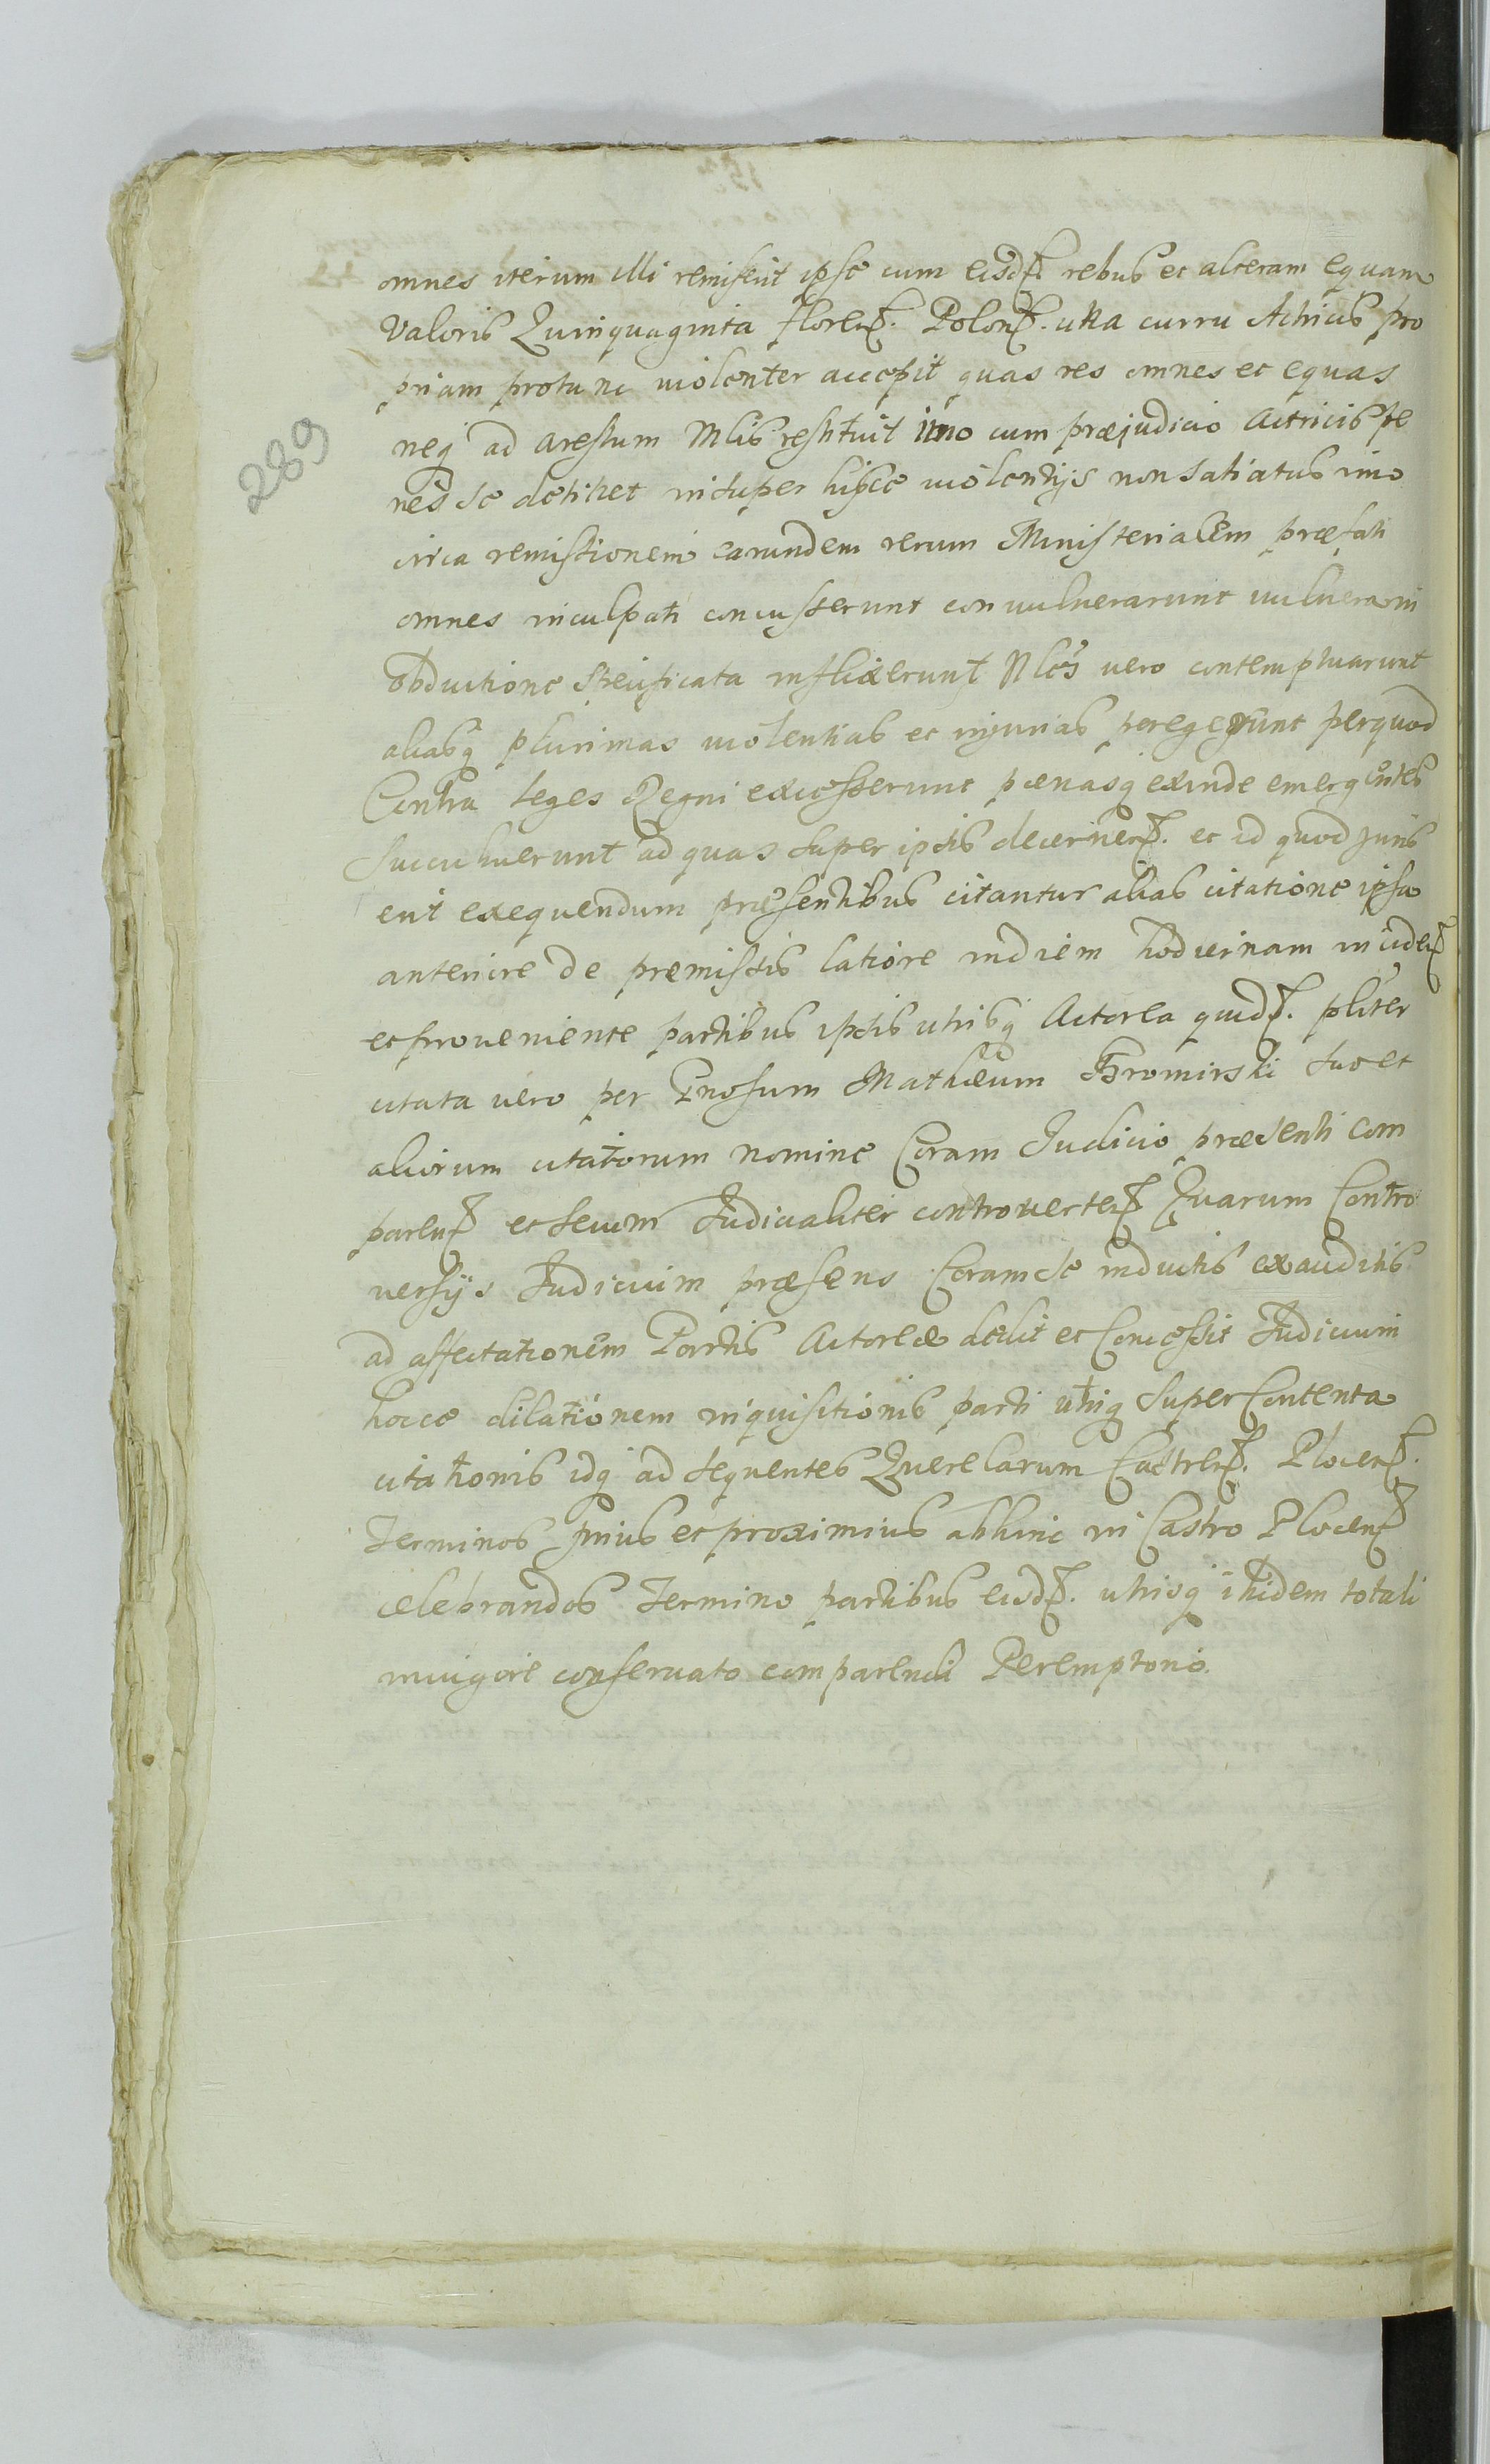 omnes iterum illi remiserit ipse cum eisd. rebus et alteram equam
Valoris Quinquaginta floren. Polon. una curru Actricis pro
priam protunc violenter accepit quas res omnes et equas
neq ad arestum Mlis restituit imo cum præjudicio Actricis pe
nes se detinet insuper hisce violentijs non satiatus imo
289
circa remissionem earundem rerum Ministerialem præfati
omnes inculpati concusserunt convulnerarunt vulnera in
obductione specificata inflixerunt Nles vero contemptuarunt
aliasq plurimas violentias et injurias peregerunt perquod
Contra leges Regni excesserunt pænasq exinde emergentes
succubuerunt ad quas super ipsis decernen. et id quod juris
erit exequendum præsentibus citantur alias citatione ipsa
anteriore de premissis latiore in diem hodiernam inciden
et proveniente partibus ipsis utrisq Actorea quid. pliter
citata vero per Gnosum Mathæum Gromirski suo et
aliorum citatorum nomine Coram Judicio præsenti com
paren et secum Judicialiter controverten Quarum Contro
versijs Judicium præsens Coram se inductis exauditis
ad affectationem Partis Actoreæ dedit et Concessit Judicium
hocce dilationem inquisitionis parti utriq super Contenta
citationis idq ad sequentes Querelarum Castren. Plocen.
Terminos prius et proximius abhinc in Castro Plocen
celebrandos Termino partibus eisd. utrisq ibidem totali
in vigore conservato comparendi Peremptorio.